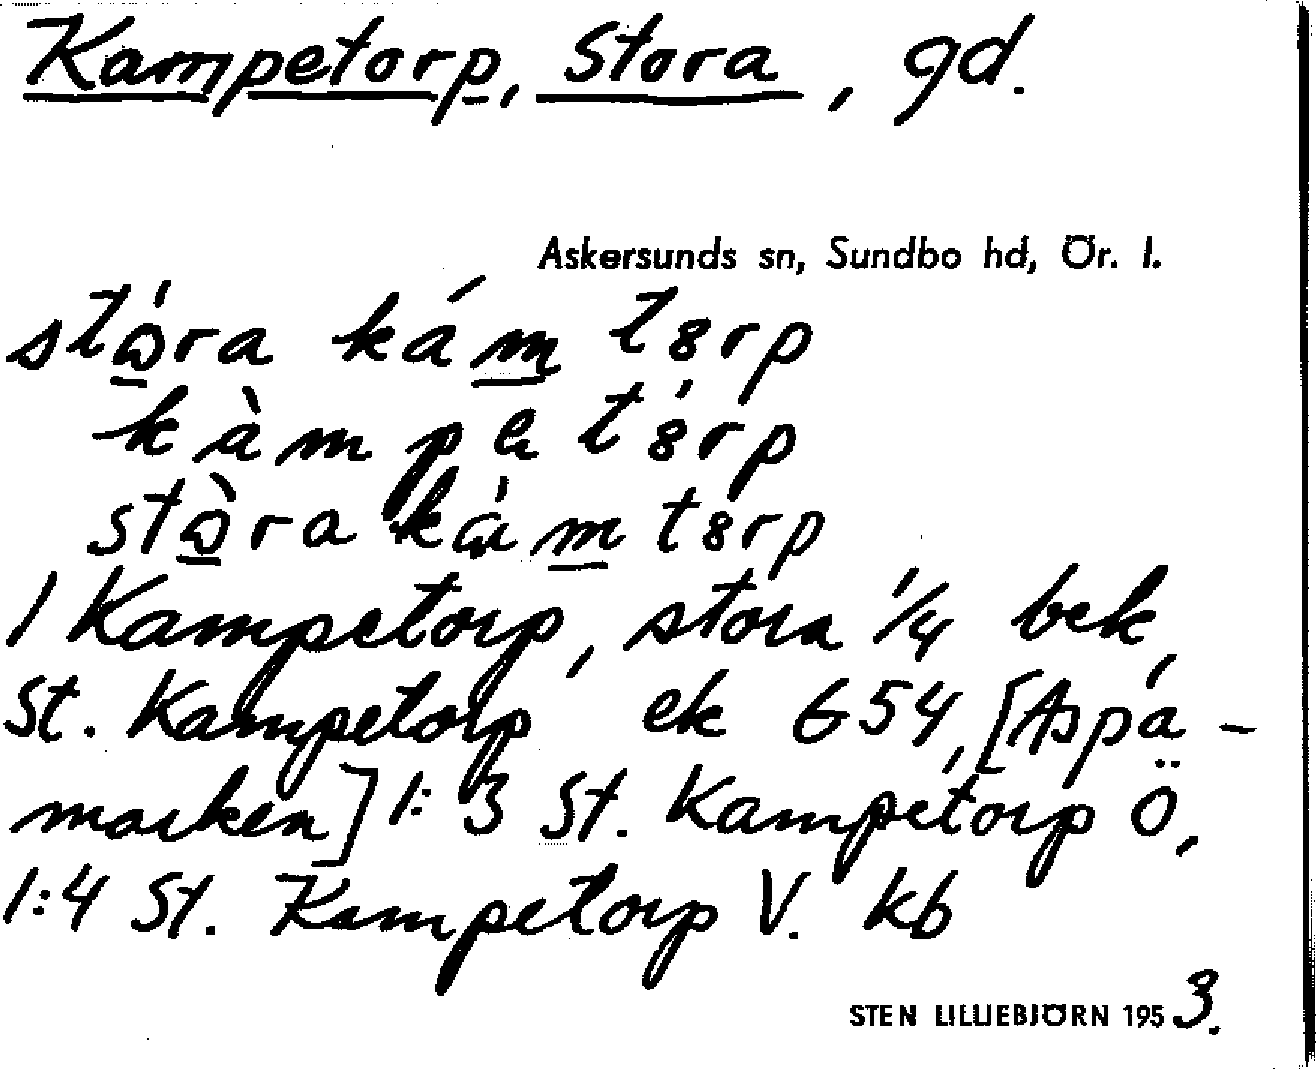 Kampetorp, Stora, gd.
Askersunds sn, Sundbo hd, Ör. l.
stɷ̀ra kám tørp
kàmpə tórp
stɷ̀ra kám tørp
1 Kampetorp, stora 1/4 bek,
St. Kampetorp ek 654, [Aspa-
marken] 1:3 St. Kampetorp Ö,
1:4 St. Kampetorp V. kb
STEN LILLIEBJÖRN 1953.